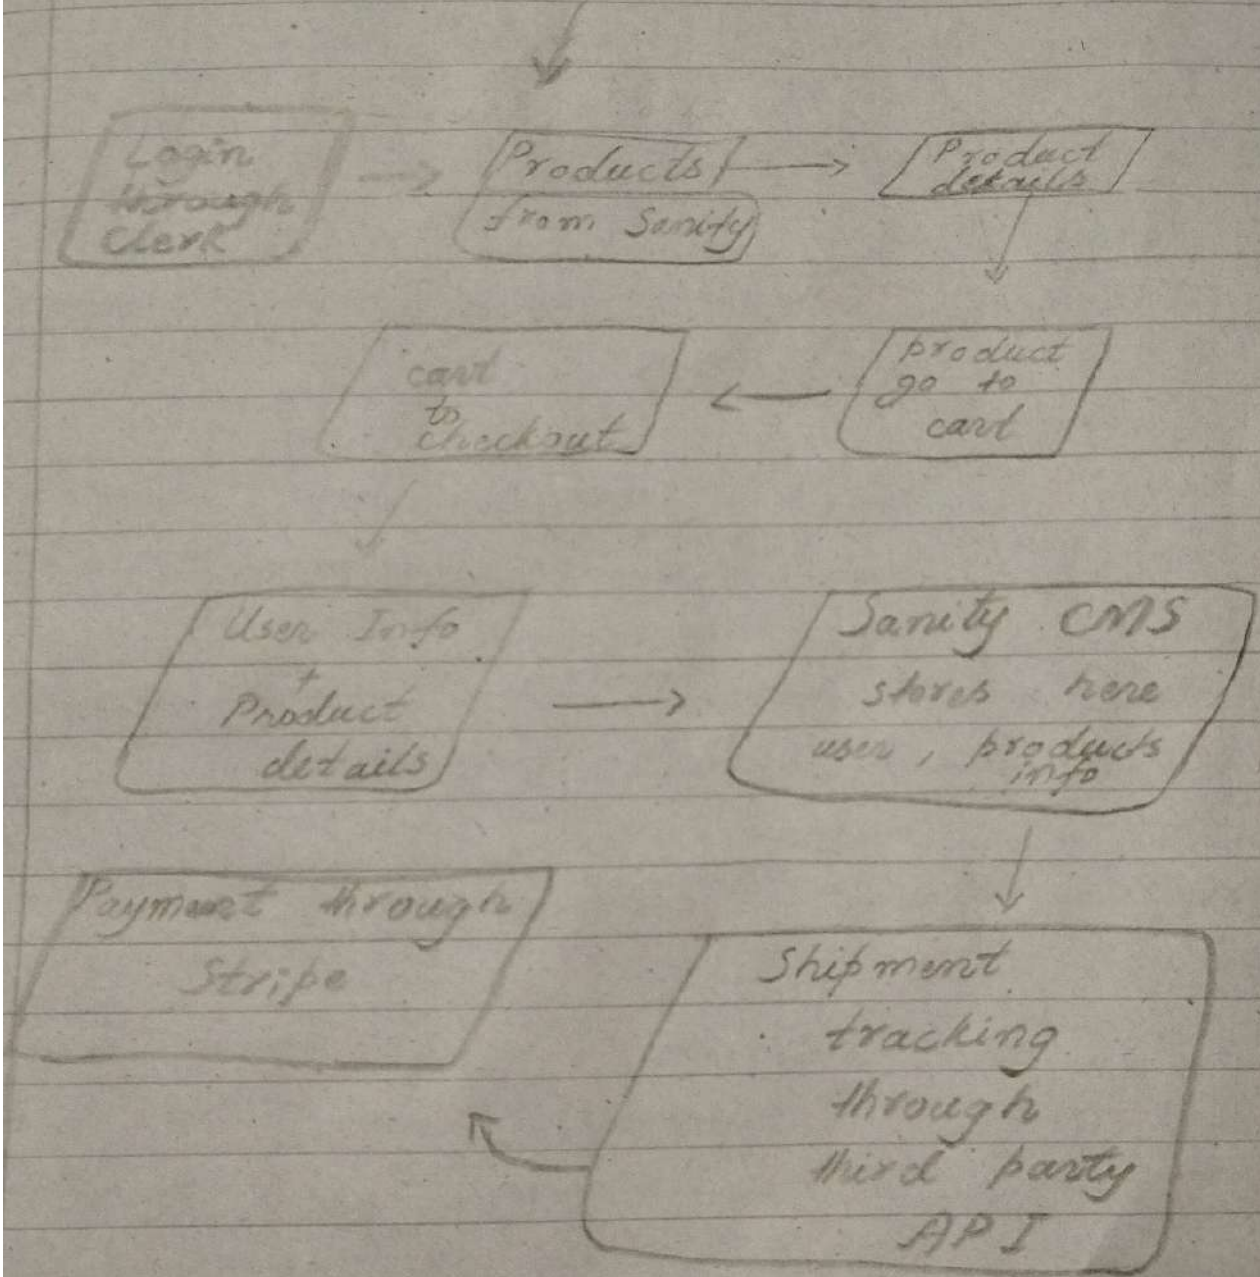 Login
through
Clerk
Products
from Sanity
Product
details
product
go to
cart
cart
to
checkout
User Info
+
Product
details
Sanity CMS
stores here
user, products
info
Payment through
Stripe
Shipment
tracking
through
third party
API